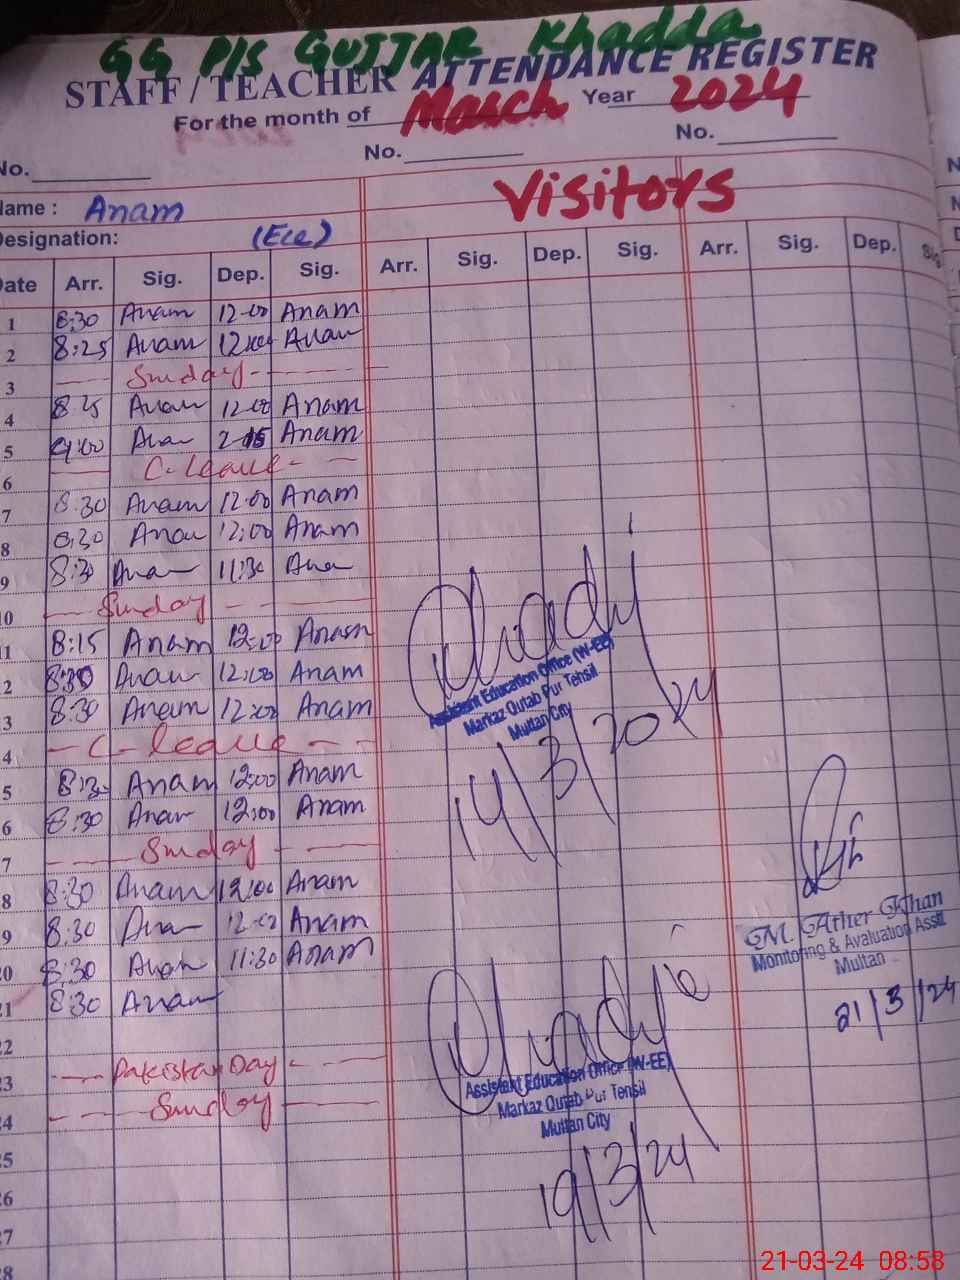 GG P/S GUJJAR Khadda
STAFF / TEACHER ATTENDANCE REGISTER
For the month of March Year 2024
No. No. No.
Name : Anam Visitors
Designation: (Ece)
Date Arr. Sig. Dep. Sig. Arr. Sig. Dep. Sig. Arr. Sig. Dep. Sig.
1 8:30 Anam 12-00 Anam
2 8:25 Anam 12:00 Anam
3 Sunday
4 8 25 Anam 12-00 Anam
5 9:00 Anam 2-15 Anam
6 C-leave
7 8.30 Anam 12:00 Anam
8 8:30 Anam 12:00 Anam
9 8:30 Anam 11:30 Anam
10 Sunday
11 8:15 Anam 12:00 Anam
2 8:30 Anam 12:00 Anam
3 8:30 Anam 12:00 Anam
4 C-leave
5 8:30 Anam 12:00 Anam
6 8:30 Anam 12:00 Anam
7 Sunday
8 8:30 Anam 12:00 Anam
9 8:30 Anam 12-00 Anam
20 8:30 Anam 11:30 Anam
21 8:30 Anam
22
23 Pakistan Day
24 Sunday
25
26
27
28
Assistant Education Office (W-EE)
Markaz Qutab Pur Tehsil
Multan City
14/3/2024
M. Ather Khan
Monitoring & Evaluation Asstt
Multan
21/3/24
Assistant Education Office (W-EE)
Markaz Qutab Pur Tehsil
Multan City
19/3/24
21-03-24 08:58